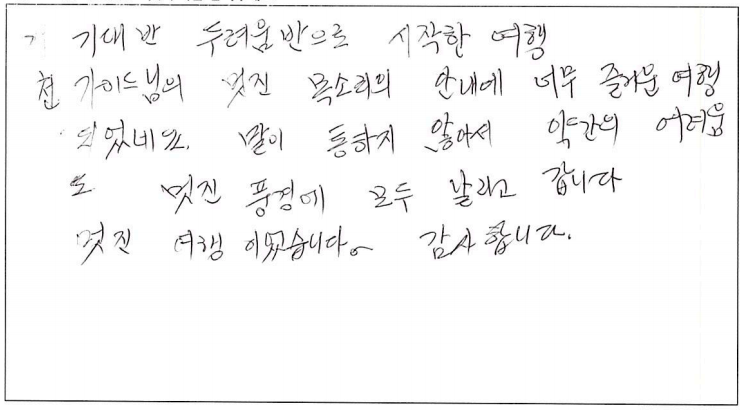 기대 반 두려움 반으로 시작한 여행
천 가이드님의 멋진 목소리의 안내에 너무 즐거운 여행
되었네요. 말이 통하지 않아서 약간의 어려움
도 멋진 풍경에 모두 날리고 갑니다
멋진 여행 이였습니다. 감사합니다.